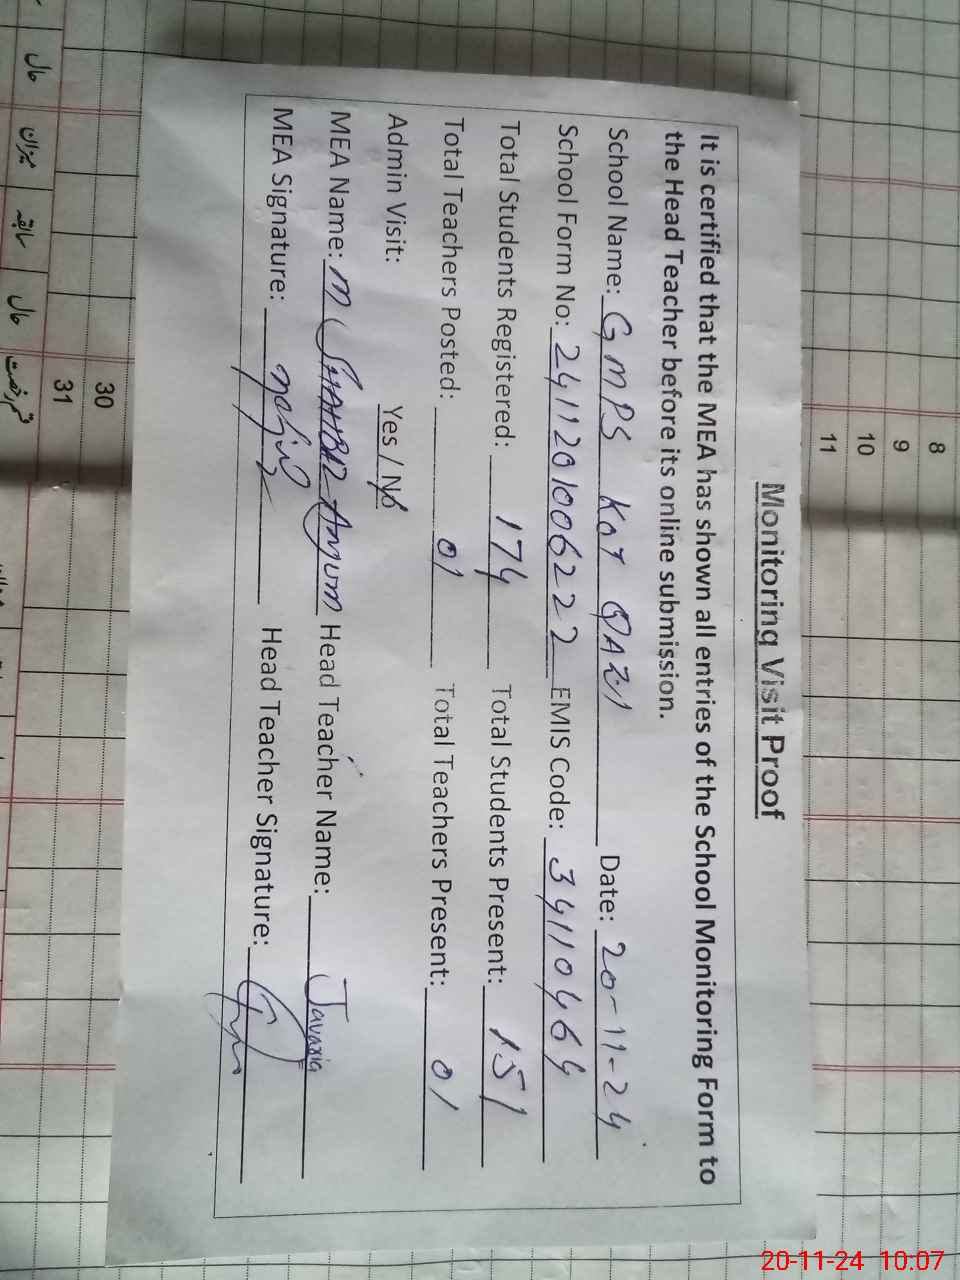 Monitoring Visit Proof
It is certified that the MEA has shown all entries of the School Monitoring Form to
the Head Teacher before its online submission.
School Name: GMPS KOT QAZI Date: 20-11-24
School Form No: 2411201006222 EMIS Code: 34110464
Total Students Registered: 174 Total Students Present: 151
Total Teachers Posted: 01 Total Teachers Present: 01
Admin Visit: Yes / No
MEA Name: M SHAHBAZ Anjum Head Teacher Name: Javaria
MEA Signature: Head Teacher Signature:
8
9
10
11
30
31
حال
میزان
سابقہ
حال
20-11-24 10:07